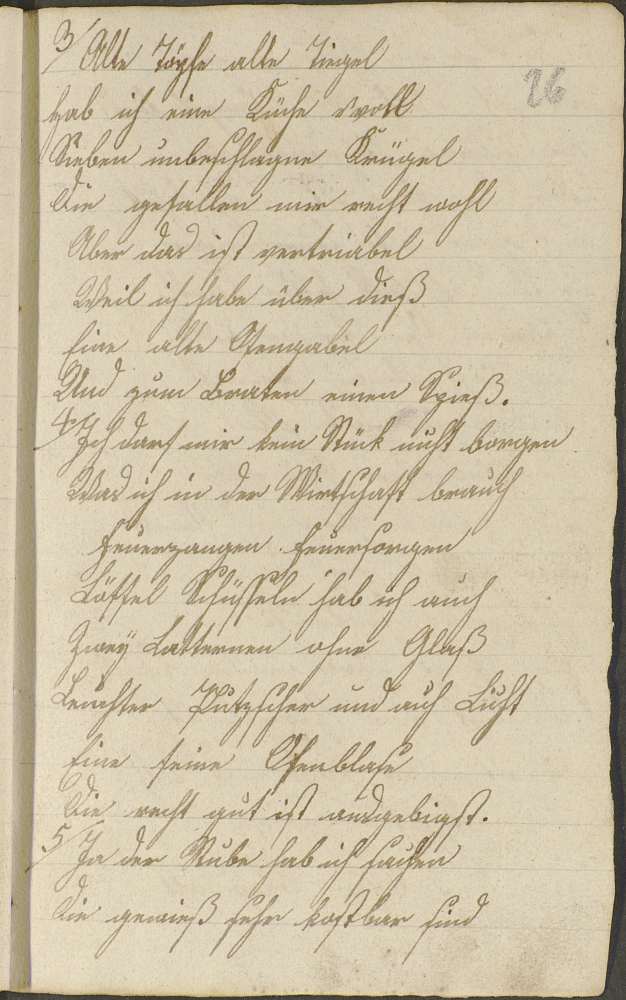 3/ Alte Töpfe alte Tiegel
26
Hab ich eine Küche voll
Sieben unbeschlagne Krügel
Die gefallen mir recht wohl
Aber das ist
Weil ich habe über dieß
Eine alte Ofengabel
Und zum Braten einen Spieß.
4/ Ich darf mir kein Stück nicht borgen
Was ich in der Wirthschaft brauch
Feuerzangen Feuersorgen
Löffel Schüsseln hab ich auch
Zwey Latternen ohne Glaß
Leuchter Putzscher und auch Licht
Eine feine Ofenblase
Die recht gut ist
5/ In der Stube hab ich Sachen
Die gewieß sehr kostbar sind